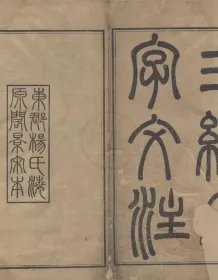 三續千
字文注
東郡楊氏海
原閣景宋本